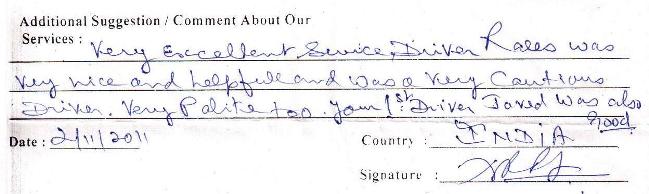 Additional Suggestion / Comment About Our
Services : Very Excellent Service, Driver Rales was
very nice and helpfull and was a very Cautious
Driver. Very Polite too. Your 1st Driver Javed was also
Good.
Date : 2/11/2011 Country : INDIA
Signature :